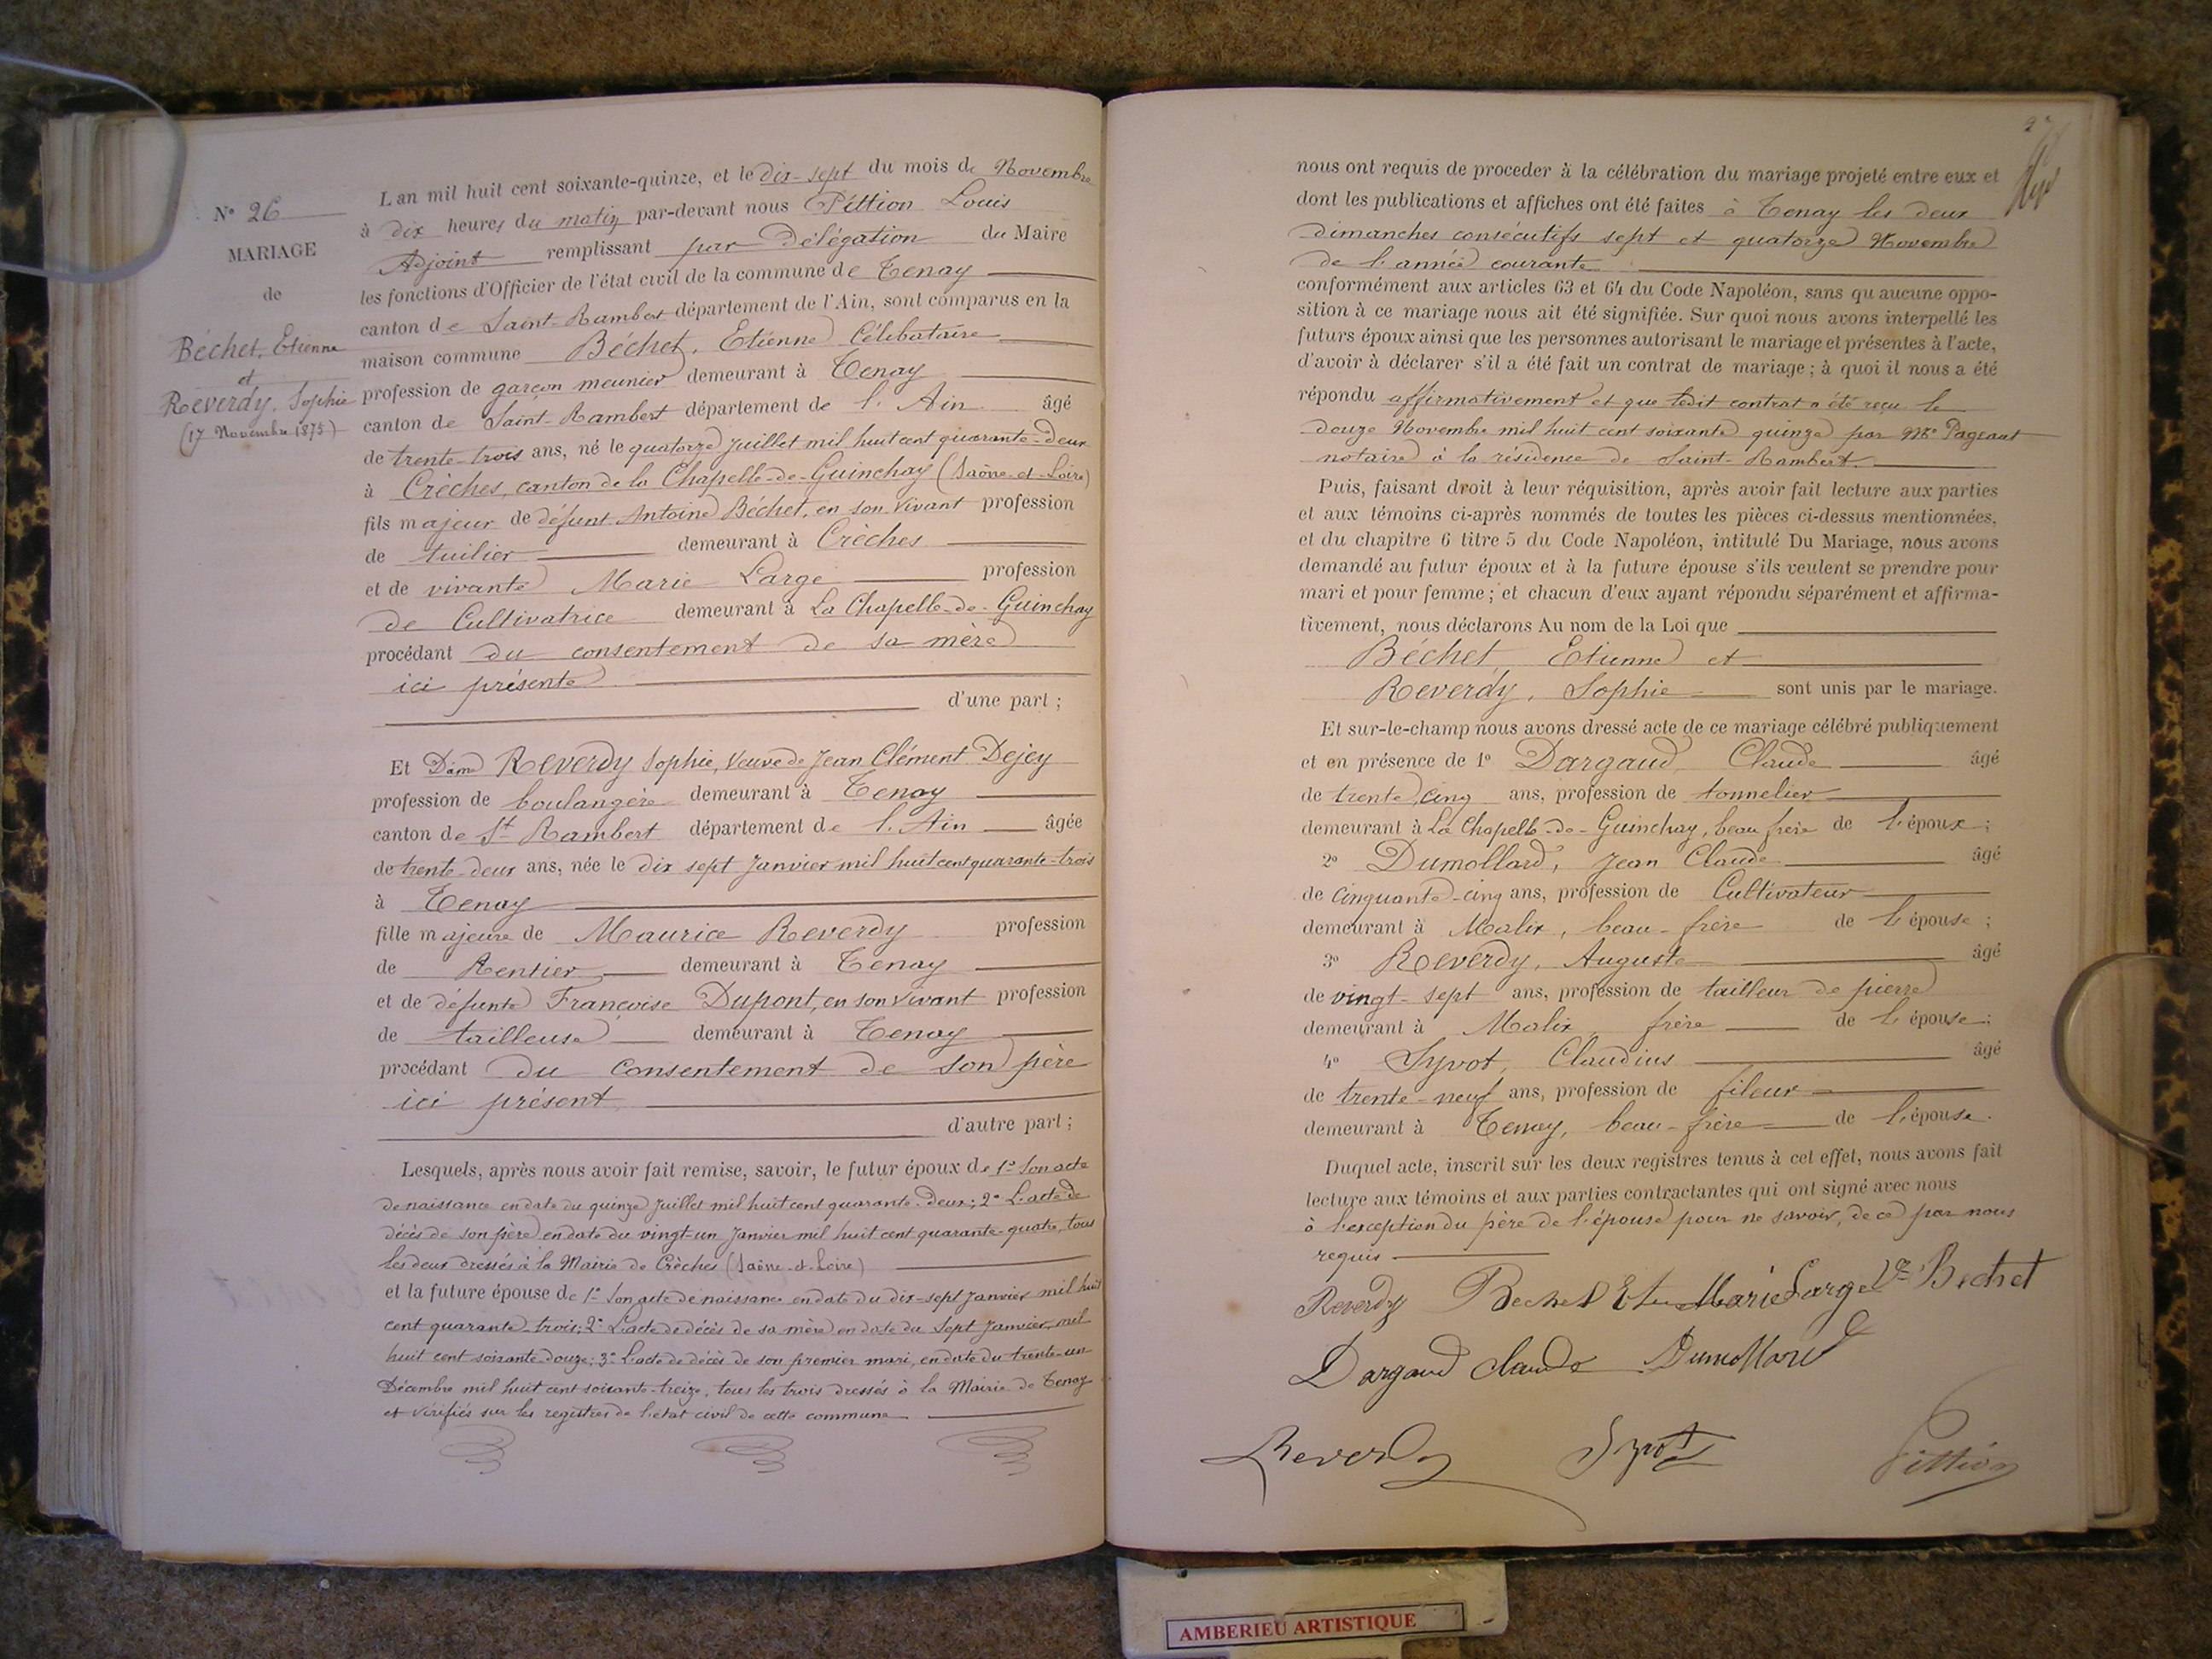 N° 26
MARIAGE
de
Béchet, Etienne
et
Reverdy, Sophie
(17 Novembre 1875)
L'an mil huit cent soixante-quinze, et le dix-sept du mois de Novembre
à dix heures du matin par-devant nous Pittion Louis
Adjoint remplissant par Délégation du Maire
les fonctions d'Officier de l'état civil de la commune de Tenay
canton de Saint-Rambert département de l'Ain, sont comparus en la
maison commune Béchet, Etienne Célibataire
profession de garçon meunier demeurant à Tenay
canton de Saint-Rambert département de l'Ain âgé
de trente-trois ans, né le quatorze juillet mil huit cent quarante-deux
à Crèches, canton de la Chapelle-de-Guinchay (Saône-et-Loire)
fils majeur de défunt Antoine Béchet, en son vivant profession
de tuilier demeurant à Crèches
et de vivante Marie Large profession
de Cultivatrice demeurant à La Chapelle-de-Guinchay
procédant du consentement de sa mère
ici présente
d'une part ;
Et Dame Reverdy Sophie, Veuve de Jean Clément Dejey
profession de boulangère demeurant à Tenay
canton de St Rambert département de l'Ain âgée
de trente-deux ans, née le dix sept Janvier mil huit cent quarante-trois
à Tenay
fille majeure de Maurice Reverdy profession
de Rentier demeurant à Tenay
et de défunte Françoise Dupont, en son vivant profession
de tailleuse demeurant à Tenay
procédant du consentement de son père
ici présent
d'autre part ;
Lesquels, après nous avoir fait remise, savoir, le futur époux de 1° Son acte
de naissance en date du quinze Juillet mil huit cent quarante-deux; 2° L'acte de
décès de son père en date du vingt-un Janvier mil huit cent quarante-quatre, tous
les deux dressés à la Mairie de Crèches (Saône-et-Loire)
et la future épouse de 1° Son acte de naissance en date du dix-sept Janvier mil huit
cent quarante-trois; 2° L'acte de décès de sa mère en date du Sept Janvier mil
huit cent soixante-douze; 3° L'acte de décès de son premier mari, en date du trente-un
Décembre mil huit cent soixante-treize, tous les trois dressés à la Mairie de Tenay
et vérifiés sur les registres de l'état civil de cette commune
nous ont requis de proceder à la célébration du mariage projeté entre eux et
dont les publications et affiches ont été faites à Tenay les deux
dimanches consécutifs sept et quatorze Novembre
de l'année courante
conformément aux articles 63 et 64 du Code Napoléon, sans qu'aucune oppo-
sition à ce mariage nous ait été signifiée. Sur quoi nous avons interpellé les
futurs époux ainsi que les personnes autorisant le mariage et présentes à l'acte,
d'avoir à déclarer s'il a été fait un contrat de mariage ; à quoi il nous a été
répondu affirmativement et que ledit contrat a été reçu le
douze Novembre mil huit cent soixante quinze par Me Pageaut
notaire à la résidence de Saint-Rambert.
Puis, faisant droit à leur réquisition, après avoir fait lecture aux parties
et aux témoins ci-après nommés de toutes les pièces ci-dessus mentionnées,
et du chapitre 6 titre 5 du Code Napoléon, intitulé Du Mariage, nous avons
demandé au futur époux et à la future épouse s'ils veulent se prendre pour
mari et pour femme ; et chacun d'eux ayant répondu séparément et affirma-
tivement, nous déclarons Au nom de la Loi que
Béchet, Etienne et
Reverdy, Sophie sont unis par le mariage.
Et sur-le-champ nous avons dressé acte de ce mariage célébré publiquement
et en présence de 1° Dargaud Claude âgé
de trente cinq ans, profession de tonnelier
demeurant à La Chapelle-de-Guinchay, beau frère de l'époux ;
2° Dumollard, Jean Claude âgé
de Cinquante-cinq ans, profession de Cultivateur
demeurant à Malix, beau-frère de l'épouse ;
3° Reverdy, Auguste âgé
de vingt-sept ans, profession de tailleur de pierre
demeurant à Malix, frère de l'épouse ;
4° Syvot, Claudius âgé
de trente-neuf ans, profession de fileur
demeurant à Tenay, beau-frère de l'épouse.
Duquel acte, inscrit sur les deux registres tenus à cet effet, nous avons fait
lecture aux témoins et aux parties contractantes qui ont signé avec nous
à l'exception du père de l'épouse pour ne savoir, de ce par nous
requis
Reverdy Bechet Et Marie Large Ve Bechet
Dargaud claude Dumollard
Reverdy Syvot Pittion
AMBERIEU ARTISTIQUE